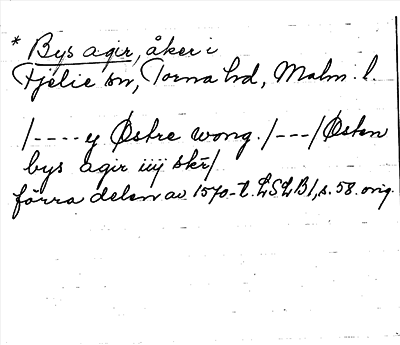 * Bys agir, åker i
Fjelie sn, Torna hd, Malm. l.
/---- y Østre wong. /---/ Østen
bys agir iiij skr/
förra delen av 1570-t. LSLB1, s. 58. orig.